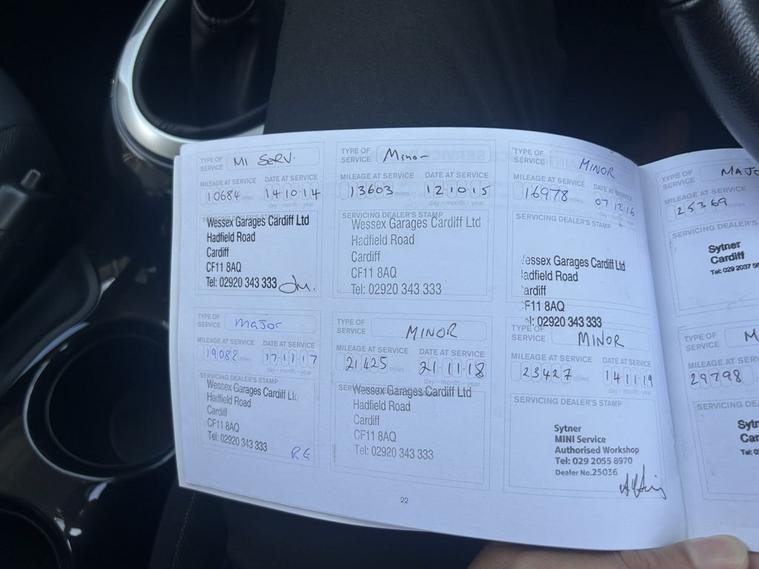 TYPE OF SERVICE MI SERV.
MILEAGE AT SERVICE DATE AT SERVICE
10684 miles 14 10 14
day - month - year
Wessex Garages Cardiff Ltd
Hadfield Road
Cardiff
CF11 8AQ
Tel: 02920 343 333
TYPE OF SERVICE Minor
MILEAGE AT SERVICE DATE AT SERVICE
13603 12 10 15
day - month - year
SERVICING DEALER'S STAMP
Wessex Garages Cardiff Ltd
Hadfield Road
Cardiff
CF11 8AQ
Tel: 02920 343 333
TYPE OF SERVICE MINOR
MILEAGE AT SERVICE DATE AT SERVICE
16978 07 12 16
day - month - year
SERVICING DEALER'S STAMP
essex Garages Cardiff Ltd
adfield Road
ardiff
F11 8AQ
l: 02920 343 333
TYPE OF SERVICE major
MILEAGE AT SERVICE DATE AT SERVICE
19082 miles 17 11 17
day - month - year
SERVICING DEALER'S STAMP
Wessex Garages Cardiff Lt
Hadfield Road
Cardiff
CF11 8AQ
Tel: 02920 343 333
RG
TYPE OF SERVICE MINOR
MILEAGE AT SERVICE DATE AT SERVICE
21425 miles 21 11 18
day - month - year
Wessex Garages Cardiff Ltd
Hadfield Road
Cardiff
CF11 8AQ
Tel: 02920 343 333
TYPE OF SERVICE MINOR
MILEAGE AT SERVICE DATE AT SERVICE
23427 miles 14 11 19
day - month - year
SERVICING DEALER'S STAMP
Sytner
MINI Service
Authorised Workshop
Tel: 029 2055 8970
Dealer No.25036
22
TYPE OF SERVICE MAJO
MILEAGE AT SERVICE
25369 miles
SERVICING DEALER'S
Sytner
Cardiff
Tel: 029 2037
TYPE OF SERVICE M
MILEAGE AT SERVICE
29798
SERVICING DE
Syt
Car
Tel: 02